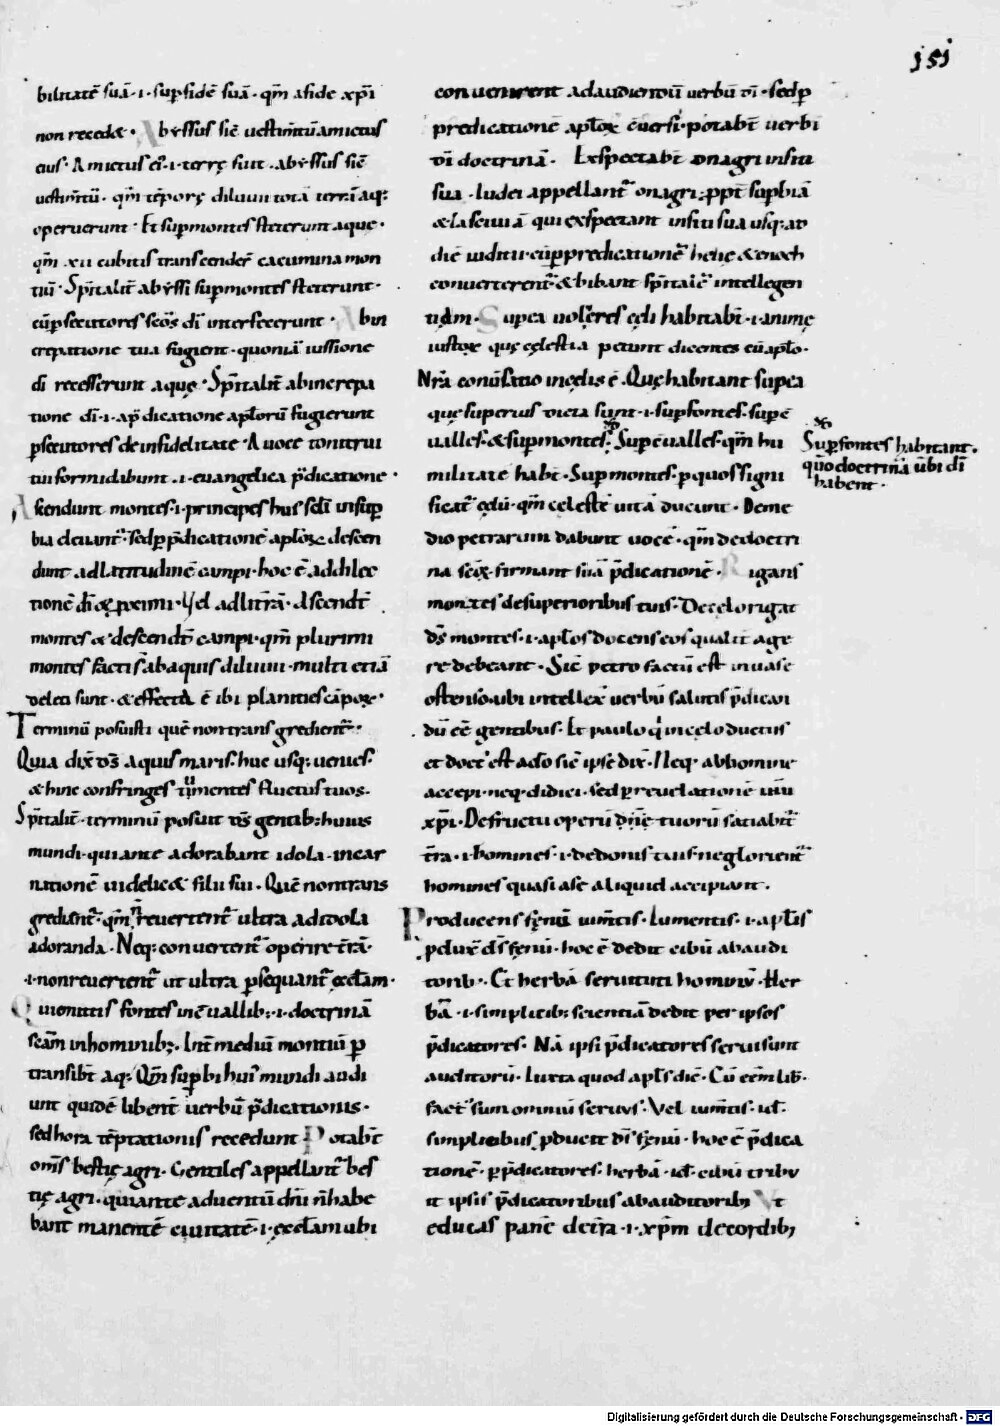 151
bilitatē suā · i · sup fidē suā · qm̄ a fide xp̄i
non recedet · Abyssus sic̄ uestim̄tū amictus
eius · Amictus ei᾽ · i · terrę fuit · abyssus sic̄
uestim̄tū · qm̄ tēporę diluuii totā terrā aq:
operuerunt · Et sup montes steterunt aque ·
qm̄ xii cubitis transcender̄ cacumina mon
tiū · Sp̄italit̄ abyssi sup montes steterunt ·
cū psecutores sc̄os dī interfecerunt · Ab in
crepatione tua fugient · quoniā iussione
dī recesserunt aquę · Sp̄italit̄ ab increpa
tione dī · i · a p̄dicatione apl̄orū fugierunt
psecutores de infidelitate · A uoce tonitrui
tui formidabunt · i · euangelica p̄dicatione ·
Ascendunt montes · i · principes hui᾽ scl̄i in sup
bia eleuant᾽ · sed p p̄dicationē apl̄oꝝ descen
dunt ad latitudinē campi · hoc ē ad dilec
tionē dī et pximi · Vel ad litterā · Ascendt̄
montes et descendt̄ campi · qm̄ plurimi
montes facti s̄ ab aquis diluuii · multi etiā
deleti sunt · et effecta ē ibi planities cāpoꝝ ·
Terminū posuisti quē non transgredient᾽ ·
Quia dix̄ ds̄ aquis maris · huc usq: uenies ·
et hinc confringes tumentes fluctus tuos ·
Sp̄italit̄ · terminū posuit ds̄ gentib: huius
mundi · qui ante adorabant idola · incar
nationē uidelicet filii sui · Quē non trans
gredient᾽ · qm̄ n̄ reuertent᾽ ultra ad idola
adoranda · Neq: conuertent᾽ operire t̄rā ·
· i · non reuertent᾽ ut ultra psequant᾽ ęcclam ·
Qui emittis fontes in cuallib: · i · doctrinā
scām in hominib; · Int̄ mediū montiū p
transibt̄ aq: · Qm̄ supbi hui᾽ mundi audi
unt quidē libent̄ uerbū p̄dicationis ·
sed hora tēptationis recedunt · Potabt̄
om̄s bestię agri · Gentiles appellant᾽ bes
tię agri · qui ante aduentū dn̄i n̄ habe
bant manentē ciuitatē · i · ęcclam ubi
conuenirent ad audiendū uerbū dī · sed p
predicationē apl̄oꝝ c̄uersi · potabt̄ uerbi
dī doctrinā · Exspectabt̄ onagri in siti
sua · Iudei appellant᾽ onagri · ppt̄ supbiā
et lasciuiā qui exspectant in siti sua usq: ad
diē iudicii · cū p predicationē helię et enoch
conuerterent᾽ et bibant sp̄italē intellegen
tiam · Supra uolucres cęli habitabt̄ · i · animę
iustoꝝ quę cęlestia petunt dicentes cū aplo ·
Nr̄a conūsatio in cęlis ē · Quę habitant supra
que superius dicta sunt · i · sup fontes · supc̄
ualles · et sup montes · Supc̄ ualles · qm̄ hu
militatē habt̄ · Sup montes · p quos signi
ficat᾽ cęlū · qm̄ cęlestē uitā ducunt · De me
dio petrarum dabunt uocē · qm̄ de doctri
na scōꝝ firmant suā p̄dicationē · Rigans
montes de superioribus tuis · De celo rigat
ds̄ montes · i · apl̄os docens eos qualit̄ age
re debeant · Sic̄ petro factū est in uase
ostenso · ubi intellex̄ uerbū salutis p̄dican
dū eē gentibus · Et paulo q̇ in cęlo ductus
et doct᾽ est a dō sic̄ ipse dix̄ · Neq · ab homine
accepi · neq · didici · sed p reuelationē iħu
xp̄i · De fructu operū dn̄e tuorū satiabit᾽
t̄ra · i · homines · i · de donis tuis · ne glorient᾽
homines quasi a se aliquid accipiant ·
Producens fęnū ium̄tis · Iumentis · i · apl̄is
pdux̄ ds̄ fęnū · hoc ē dedit cibū ab audi
torib · · Et herbā seruituti hominū · Her
bā · i · simplicib: scientiā dedit per ipsos
p̄dicatores · Nā ipsi p̄dicatores seruiunt
auditorū · Iuxta quod apl̄s dic̄ · Cū eēm lib̄ ·
fact᾽ sum omniū seruus · Vel ium̄tis · id̄ ·
simplicibus pducit ds̄ fęnū · hoc ē p̄dica
tionē · p p̄dicatores · herbā · id̄ · cibū tribu
it ipsis p̄dicatoribus ab auditorib; Vt
educas panē de t̄ra · i · xp̄m de cordib;
Sup fontes habitant ·
quō doctrinā ūbi dī
habent ·
Digitalisierung gefördert durch die Deutsche Forschungsgemeinschaft · DFG